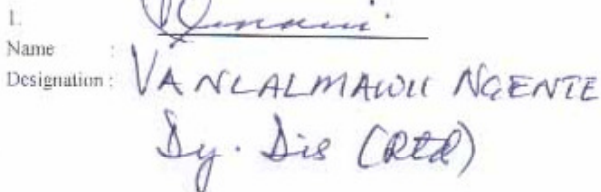 1.
Name :
Designation : VANLALMAWII NGENTE
Dy. Dis (Rtd)